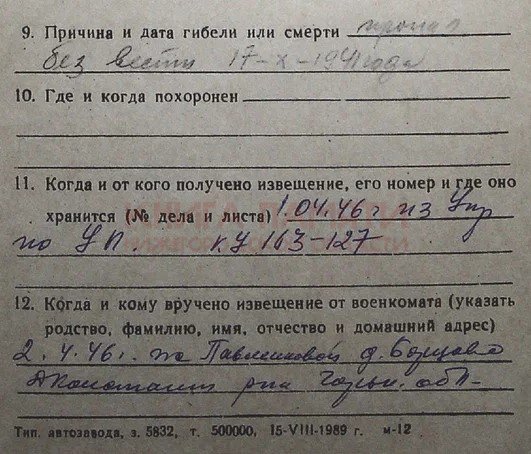 9. Причина и дата гибели или смерти пропал
без вести 17-X-1941 года
10. Где и когда похоронен
11. Когда и от кого получено извещение, его номер и где оно
хранится (№ дела и листа) 1.04.46 г из Упр
КНИГА ПАМЯТИ
по УП. КУ 163-127
НИЖЕГОРОДСКОЙ ОБЛАСТИ
12. Когда и кому вручено извещение от военкомата (указать
родство, фамилию, имя, отчество и домашний адрес)
2.4.46 г. Павленковой д.
р-на Горьк. обл-
Тип. автозавода, з. 5832, т. 500000, 15-VIII-1989 г. м-12